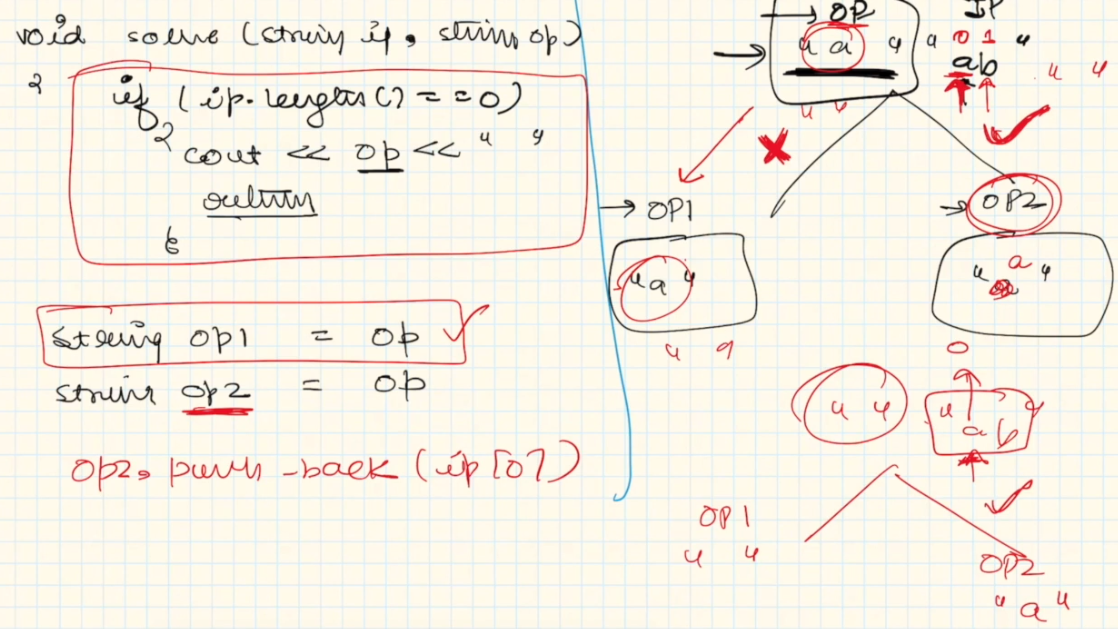 void solve (string ip, string op)
{
if ( ip.length() == 0)
{
cout << op << " "
return
}
string op1 = op
string op2 = op
op2. push_back (ip[0])
OP
IP
" a "
" 0 1 "
ab
" "
" "
OP1
OP2
" a "
" a "
" "
0
" "
" a b "
OP1
" "
OP2
" a "